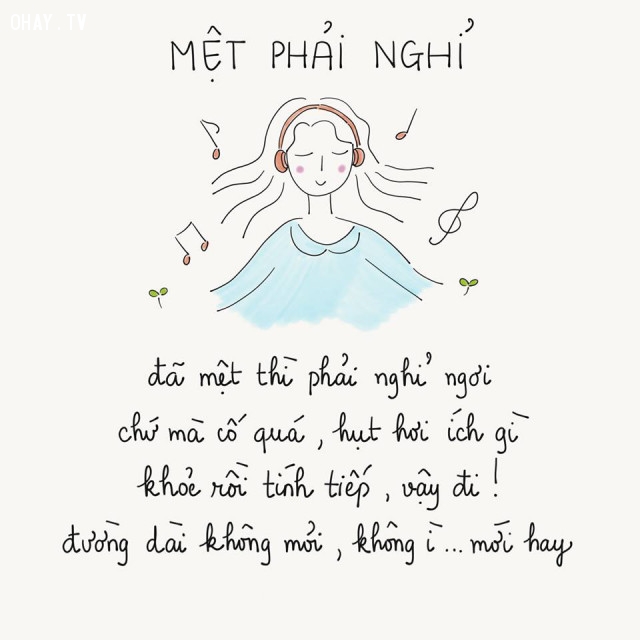 OHAY.TV
MỆT PHẢI NGHỈ
đã mệt thì phải nghỉ ngơi
chứ mà cố quá, hụt hơi ích gì
khỏe rồi tính tiếp, vậy đi!
đường dài không mỏi, không ì... mới hay